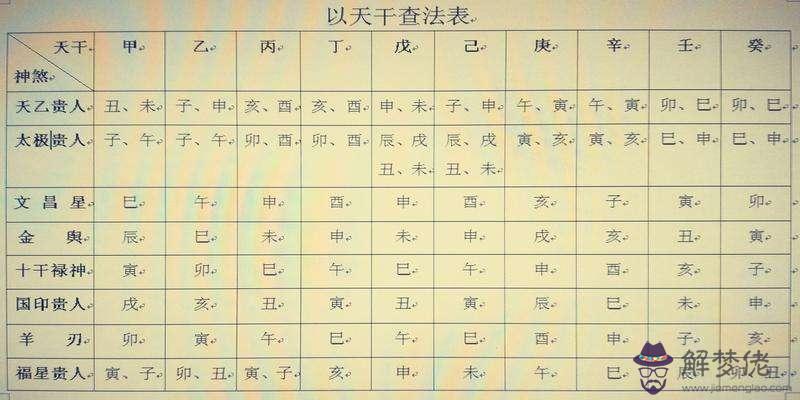 以天干查法表
天干 甲 乙 丙 丁 戊 己 庚 辛 壬 癸
神煞
天乙贵人 丑、未 子、申 亥、酉 亥、酉 申、未 子、申 午、寅 午、寅 卯、巳 卯、巳
太极贵人 子、午 子、午 卯、酉 卯、酉 辰、戌 辰、戌 寅、亥 寅、亥 巳、申 巳、申
丑、未 丑、未
文昌星 巳 午 申 酉 申 酉 亥 子 寅 卯
金舆 辰 巳 未 申 未 申 戌 亥 丑 寅
十干禄神 寅 卯 巳 午 巳 午 申 酉 亥 子
国印贵人 戌 亥 丑 寅 丑 寅 辰 巳 未 申
羊刃 卯 寅 午 巳 午 巳 酉 申 子 亥
福星贵人 寅、子 卯、丑 寅、子 亥 申 未 午 巳 辰 卯、丑
解梦佬
www.jiemenglao.com